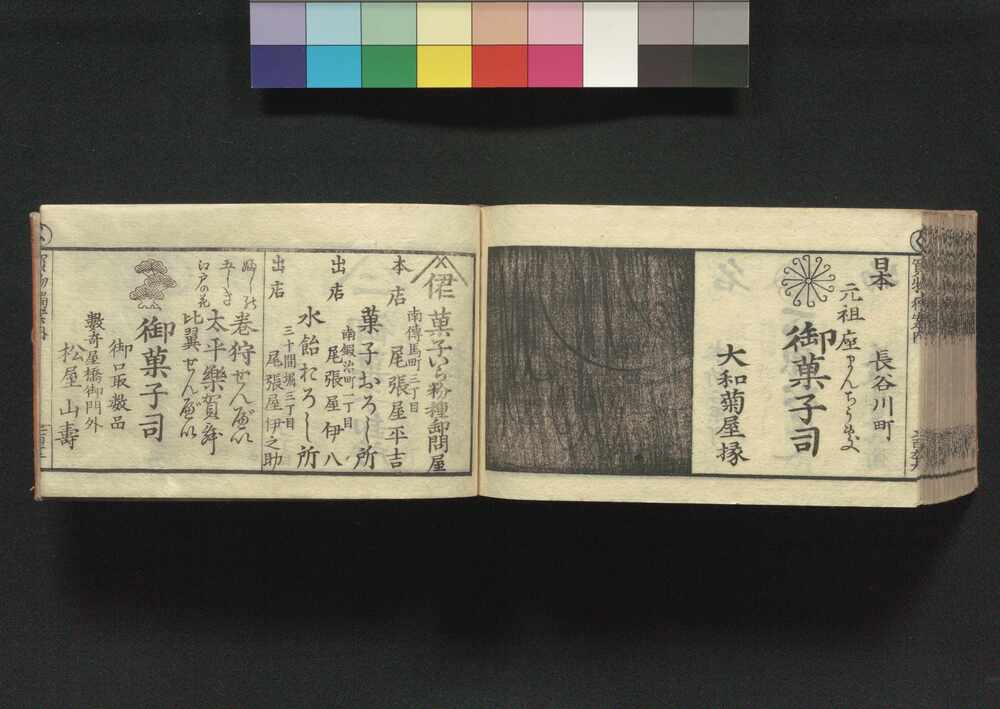 日本
長谷川町
元祖
御菓子司
大和菊屋掾
伊
菓子いら粉種卸問屋
本店
南傳馬町三丁目
尾張屋平吉
菓子おろし所
出店
南鍛冶町一丁目
尾張屋伊八
水飴おろし所
出店
三十間堀三丁目
尾張屋伊之助
巻狩せんべい
太平樂賀舞
江戸の花
比翼せんべい
御菓子司
御口取数品
数寄屋橋御門外
松屋山壽